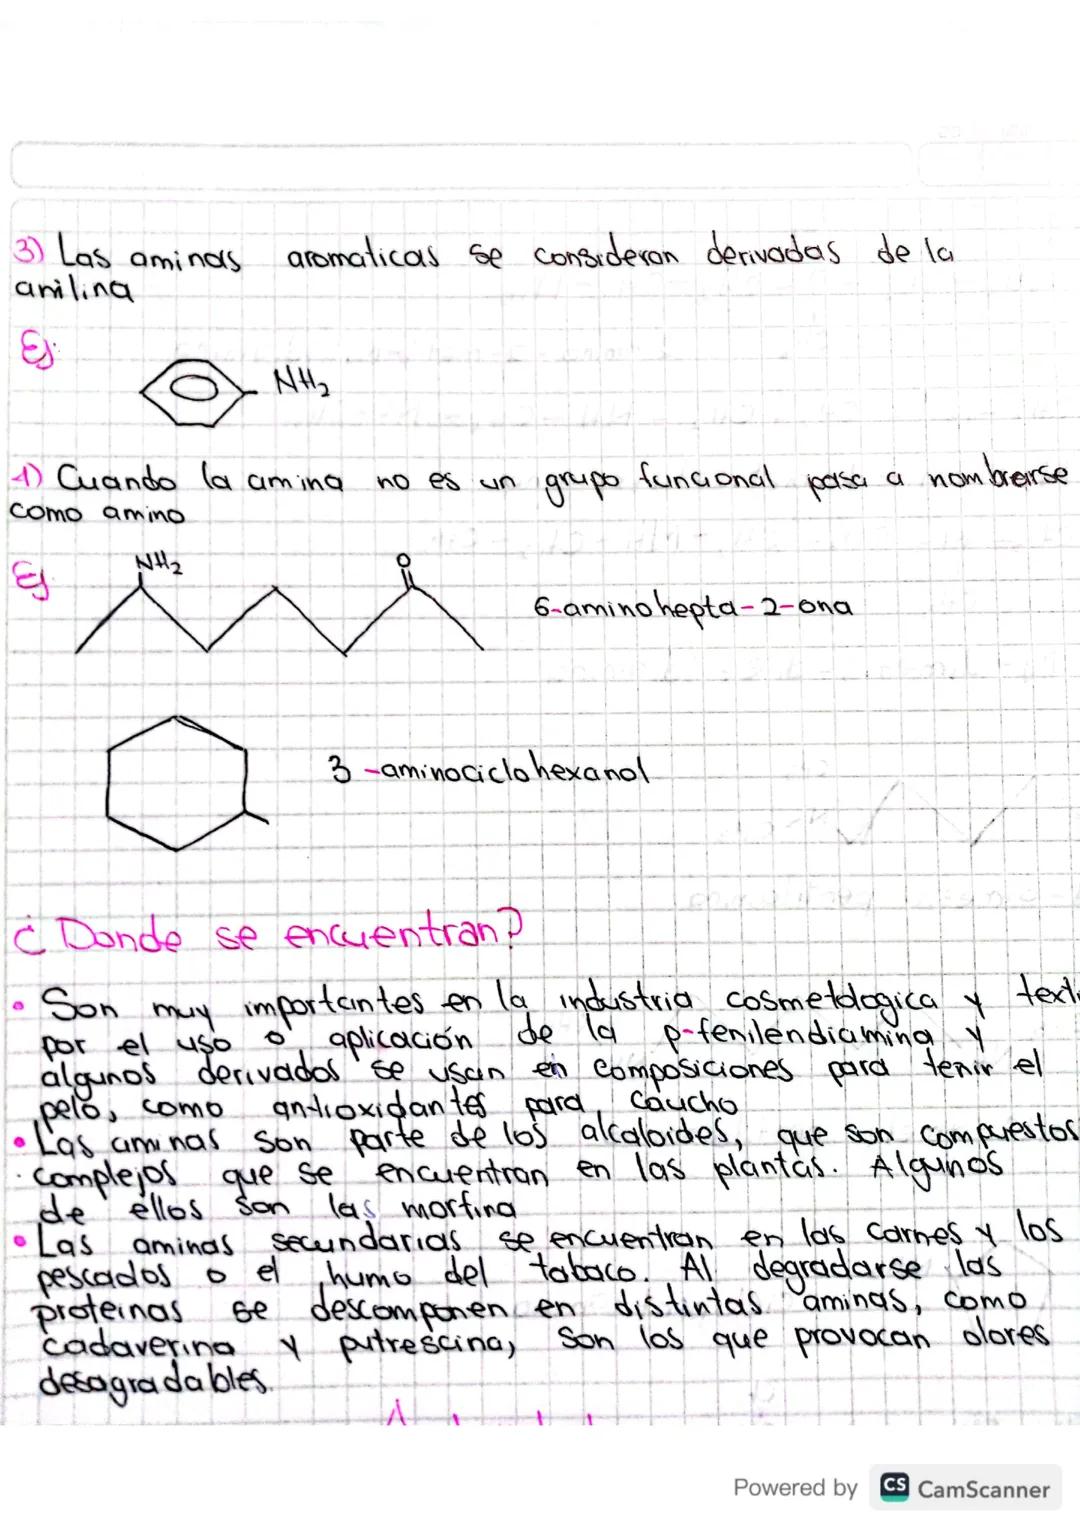 3) Las aminas aromaticas se consideran derivadas de la
anilina
Ej:
NH₂
4) Cuando la amina no es un grupo funcional pasa a nombrarse
como amino
Ej
NH₂
O
6-aminohepta-2-ona
3-aminociclohexanol
¿Donde se encuentran?
• Son muy importantes en la industria cosmetologica y
por el uso o aplicación de la p-fenilendiamina y
algunos derivados se usan en composiciones para tenir el
pelo, como antioxidantes para caucho
• Las aminas son parte de los alcaloides, que son compuestos
complejos que se encuentran en las plantas. Algunos
de ellos son las morfina
• Las aminas secundarias se encuentran en las carnes y los
pescados o el humo del tabaco. Al degradarse las
proteinas se descomponen en distintas aminas, como
cadaverina y putrescina, son los que provocan olores
desagradables.
Powered by CS CamScanner